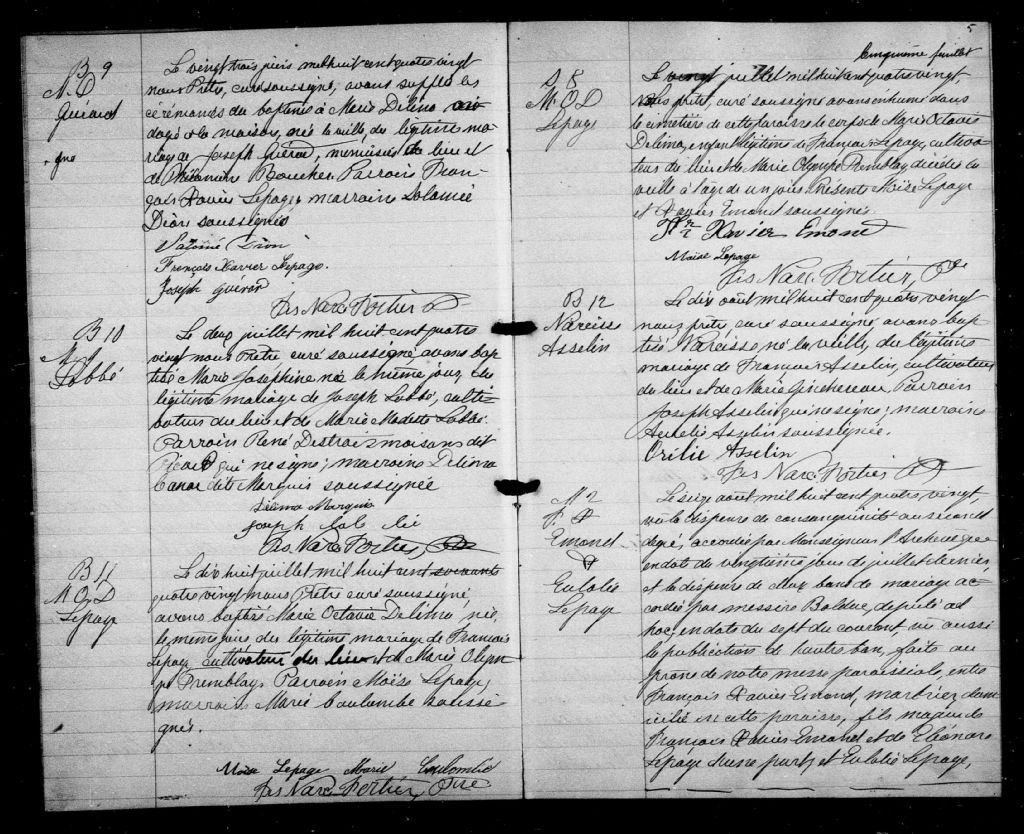 B 9
M. D
Guérard
Le vingt trois juin mil huit cent quatre vingt
nous Prêtre, curé soussigné, avons suppléé les
cérémonies du baptême à Marie Délima
à la maison, née la veille, du légitime ma-
riage de Joseph Guérard, menuisier de lieu et
de Philomène Boucher. Parrain Fran-
çois Xavier Lepage, marraine Salomée
Dion soussignés
Salomé Dion
François Xavier Lepage.
Joseph Guérard
Frs Narc. Fortier, Ptre
B 10
M. J
Labbé
Le deux juillet mil huit cent quatre
vingt nous Prêtre curé soussigné, avons bap-
tisé Marie Josephine née le même jour, du
légitime mariage de Joseph Labbé, culti-
vateur du lieu et de Marie Modeste Labbé.
Parrain René Destroismaisons dit
Picard qui ne signe; marraine Délima
Canac dit Marquis soussignée
Délima Marquis
Joseph Labbé
Frs Narc. Fortier, Ptre
B 11
M. O. D
Lepage
Le dix huit juillet mil huit cent soixante
quatre vingt nous Prêtre curé soussigné,
avons baptisé Marie Octavie Délima, née
le même jour du légitime mariage de François
Lepage, cultivateur du lieu et de Marie Olym-
pe Tremblay. Parrain Moïse Lepage,
marraine Marie Coulombe soussi-
gnés.
Moïse Lepage Marie Coulombe
Frs Narc. Fortier, Ptre
5
Cinquième feuillet
S 8
M. O. D
Lepage
Le vingt juillet mil huit cent quatre vingt,
Nous prêtre, curé soussigné avons inhumé dans
le cimetière de cette paroisse le corps de Marie Octavie
Délima, enfant légitime de François Lepage, cultiva-
teur du lieu et de Marie Olympe Tremblay décédée la
veille à l'age de un jour. Présents Moïse Lepage
et Xavier Emond soussignés
Frs Xavier Emond
Moïse Lepage
Frs Narc. Fortier, Ptre
B 12
Narcisse
Asselin
Le dix août mil huit cent quatre vingt
nous prêtre, curé soussigné avons bap-
tisé Narcisse, né la veille, du légitime
mariage de François Asselin, cultivateur
du lieu et de Marie Guichereau. Parrain
Joseph Asselin qui ne signe; marraine
Aurélie Asselin soussignée.
Orilie Asselin
Frs Narc. Fortier Ptre
M 2
F. X
Emond
&
Eulalie
Lepage
Le seize août mil huit cent quatre vingt,
vu la dispense de consanguinité au second
degré, accordée par Monseigneur l'Archevêque
en date du vingtième jour de juillet dernier,
et la dispense de deux bans de mariage ac-
cordée par messire Bolduc, député ad
hoc, en date du sept du courant, vu aussi
la publication de l'autre ban, faite au
prône de notre messe paroissiale, entre
François Xavier Emond, marbrier, domi-
cilié en cette paroisse, fils majeur de
François Xavier Emond et de Eléonore
Lepage d'une part; et Eulalie Lepage,